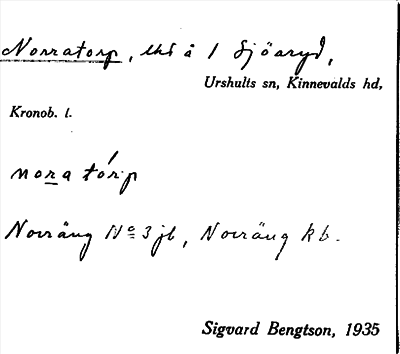 Norratorp, lht å 1 Sjöaryd,
Urshults sn, Kinnevalds hd,
Kronob. l.
nora tórp
Norräng No 3 jb, Norräng kb.
Sigvard Bengtson, 1935